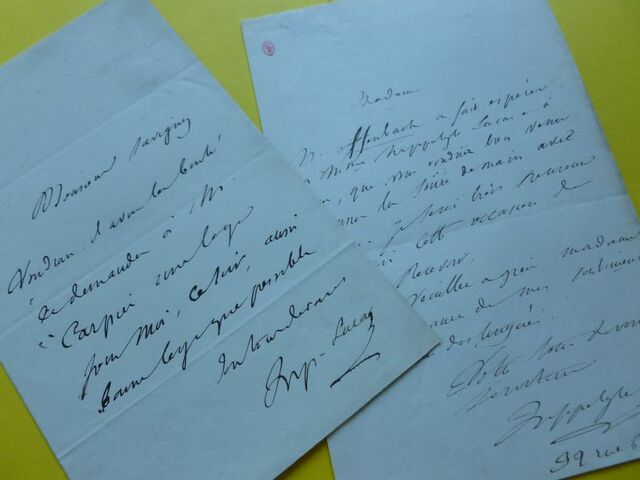 Monsieur Savigny
Voudrait il avoir la bonté
de demander à Mr
Carpier une loge
pour moi, ce soir, aussi
bonne loge que possible
Hip. Lucas
Madame
M. Offenbach a fait espérer
à Mme Hippolyte Lucas et à
moi, que vous voudriez bien venir
la soirée de demain avec
je serai très heureux
cette occasion de
recevoir
Veuillez agréer, madame
de mes sentiments
distingués
Votre tout dévoué
serviteur
Hippolyte
99 rue